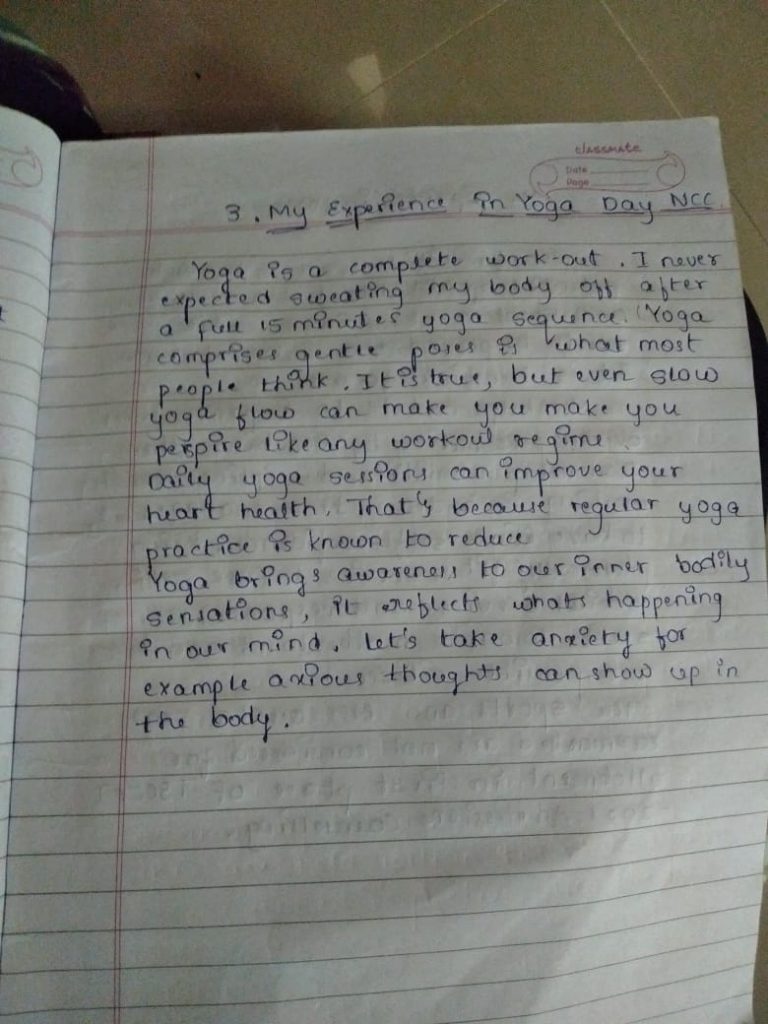 classmate
Date
Page
3. My Experience in Yoga Day NCC
Yoga is a complete work-out. I never
expected sweating my body off after
a full 15 minutes yoga sequence. Yoga
comprises gentle poses is what most
people think. It is true, but even slow
yoga flow can make you make you
perspire like any workout regime.
Daily yoga sessions can improve your
heart health. That's because regular yoga
practice is known to reduce
Yoga brings awareness to our inner bodily
sensations, it reflects whats happening
in our mind. Let's take anxiety for
example axious thoughts can show up in
the body.